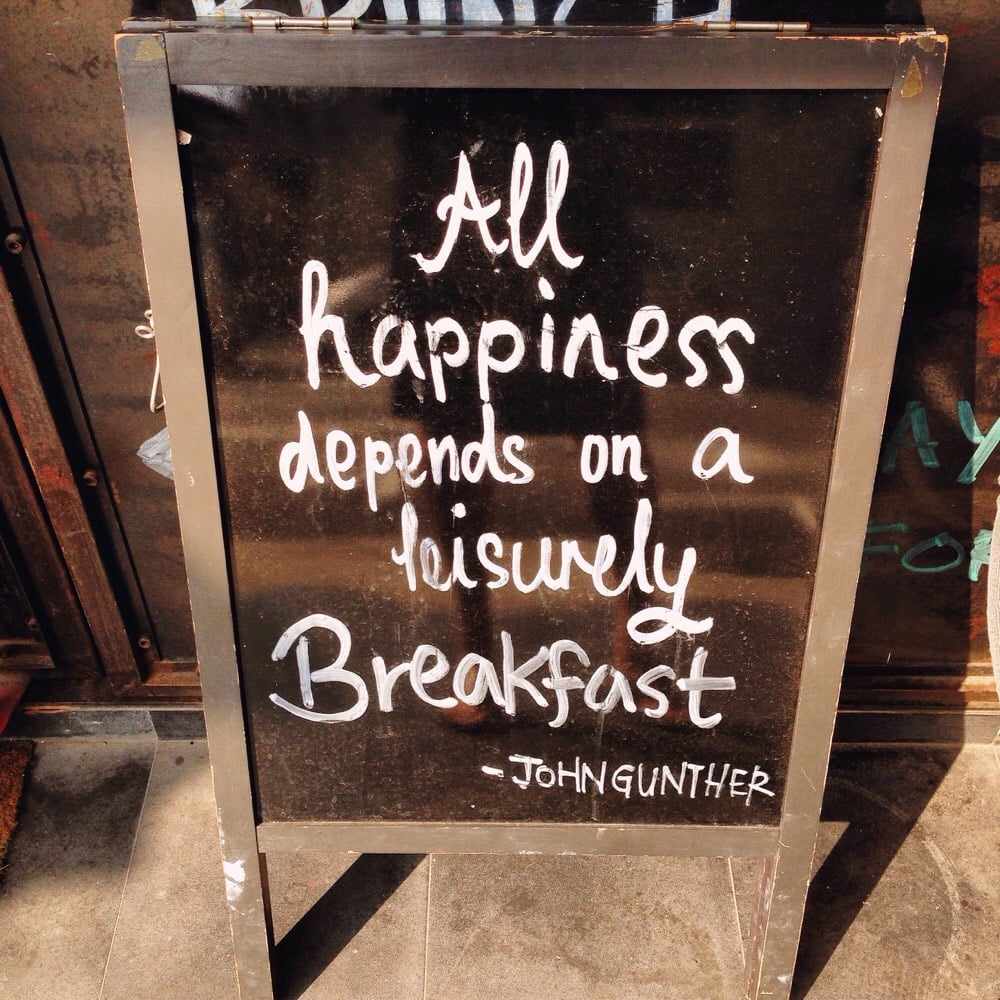 All
happiness
depends on a
leisurely
Breakfast
-JOHN GUNTHER
AY
FO